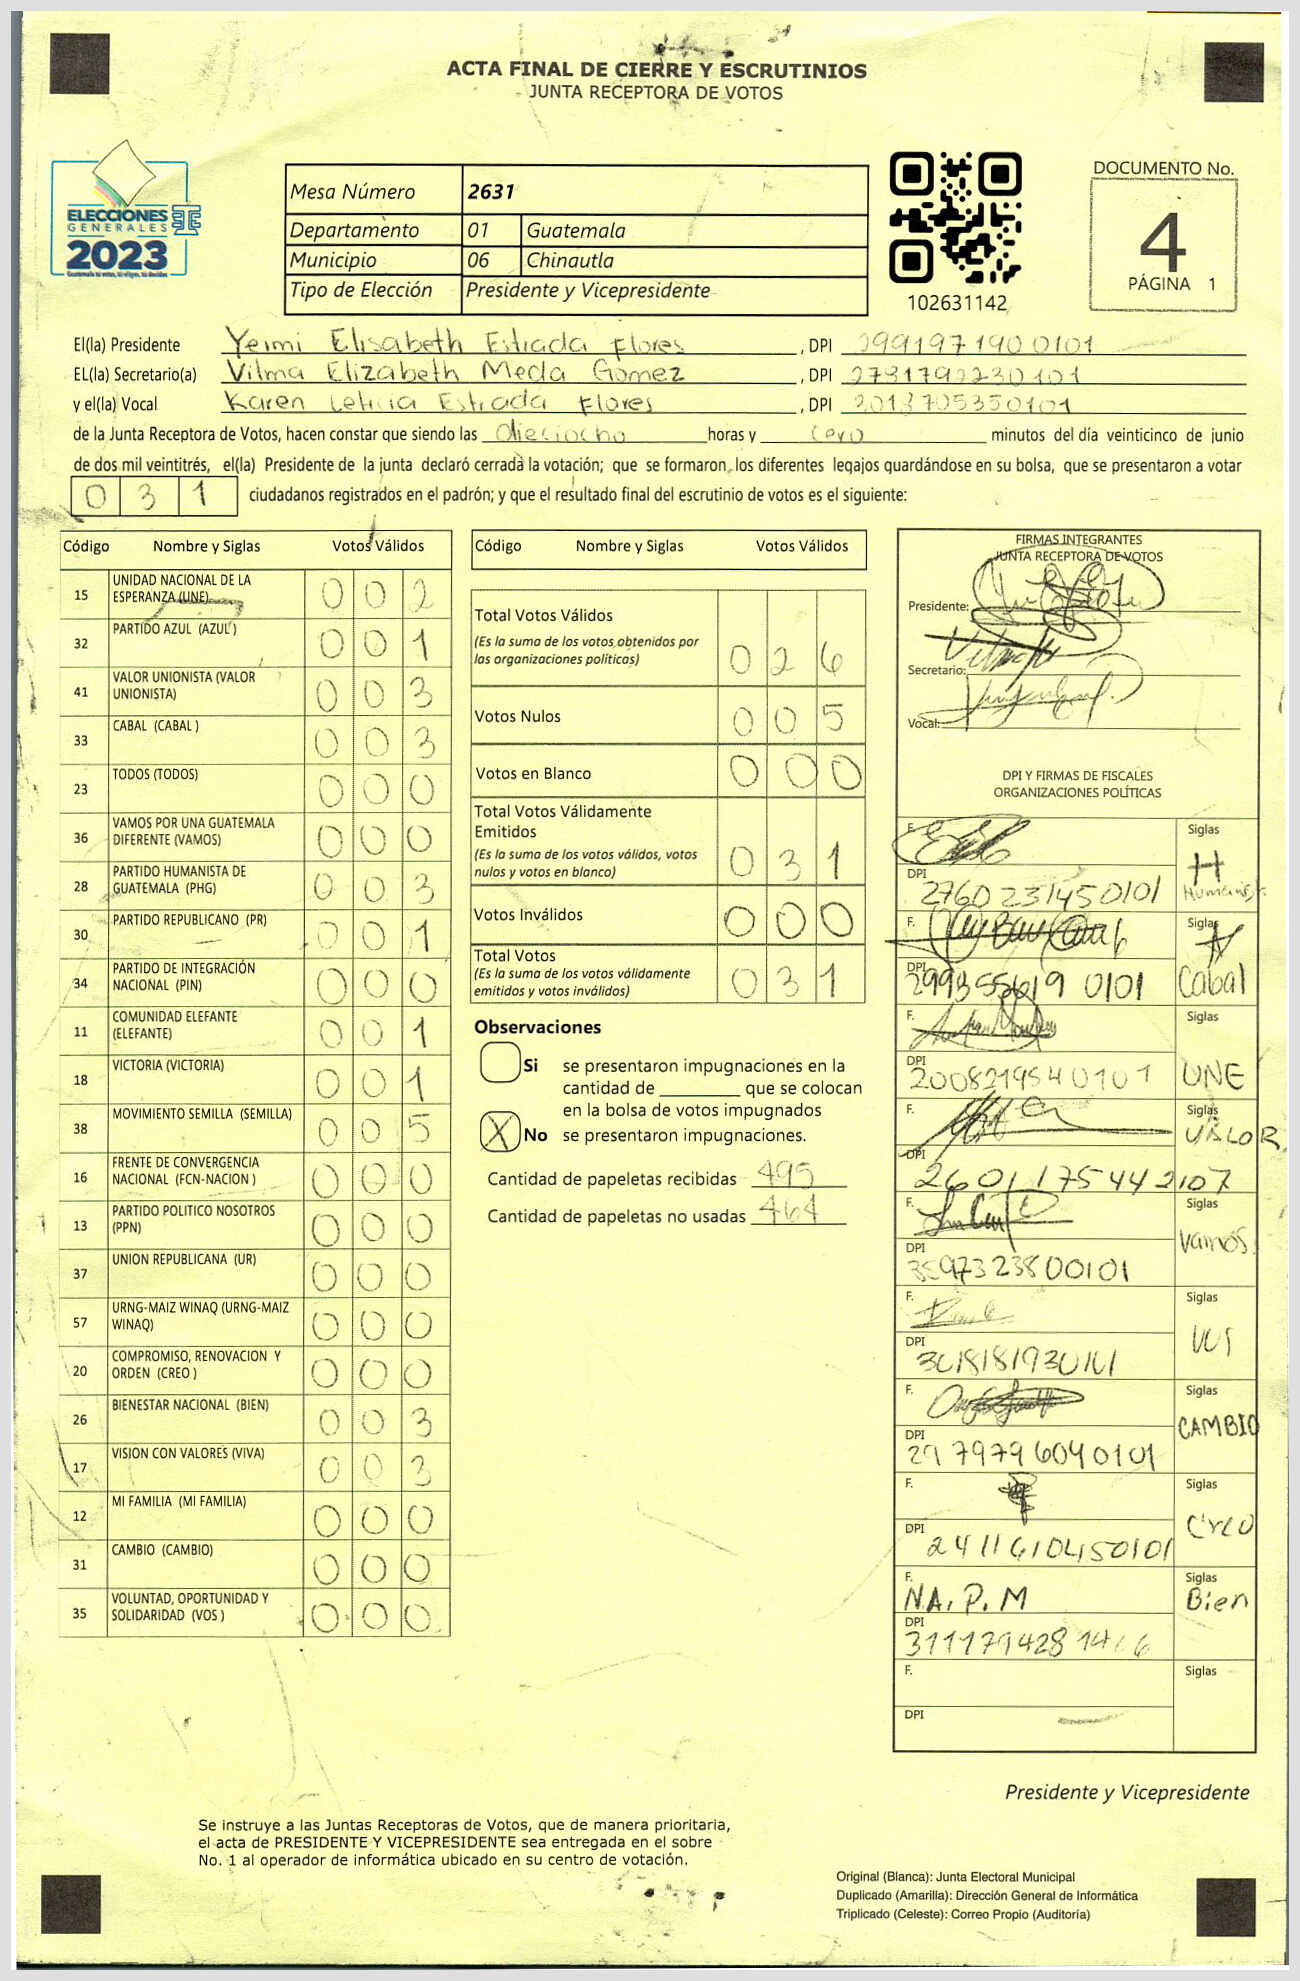 ACTA FINAL DE CIERRE Y ESCRUTINIOS
JUNTA RECEPTORA DE VOTOS
ELECCIONES
GENERALES
2023
Mesa Número 2631
Departamento 01 Guatemala
Municipio 06 Chinautla
Tipo de Elección Presidente y Vicepresidente
102631142
DOCUMENTO No.
4
PÁGINA 1
El(la) Presidente Yeimi Elisabeth Estrada Flores, DPI 2991971900101
EL(la) Secretario(a) Vilma Elizabeth Meda Gomez, DPI 2731792230101
y el(la) Vocal Karen Leticia Estrada Flores, DPI 2013705350101
de la Junta Receptora de Votos, hacen constar que siendo las Dieciocho horas y cero minutos del día veinticinco de junio
de dos mil veintitrés, el(la) Presidente de la junta declaró cerrada la votación; que se formaron los diferentes legajos guardándose en su bolsa, que se presentaron a votar
0 3 1 ciudadanos registrados en el padrón; y que el resultado final del escrutinio de votos es el siguiente:
Código Nombre y Siglas Votos Válidos
15 UNIDAD NACIONAL DE LA ESPERANZA (UNE) 0 0 2
32 PARTIDO AZUL (AZUL) 0 0 1
41 VALOR UNIONISTA (VALOR UNIONISTA) 0 0 3
33 CABAL (CABAL ) 0 0 3
23 TODOS (TODOS) 0 0 0
36 VAMOS POR UNA GUATEMALA DIFERENTE (VAMOS) 0 0 0
28 PARTIDO HUMANISTA DE GUATEMALA (PHG) 0 0 3
30 PARTIDO REPUBLICANO (PR) 0 0 1
34 PARTIDO DE INTEGRACIÓN NACIONAL (PIN) 0 0 0
11 COMUNIDAD ELEFANTE (ELEFANTE) 0 0 1
18 VICTORIA (VICTORIA) 0 0 1
38 MOVIMIENTO SEMILLA (SEMILLA) 0 0 5
16 FRENTE DE CONVERGENCIA NACIONAL (FCN-NACION ) 0 0 0
13 PARTIDO POLITICO NOSOTROS (PPN) 0 0 0
37 UNION REPUBLICANA (UR) 0 0 0
57 URNG-MAIZ WINAQ (URNG-MAIZ WINAQ) 0 0 0
20 COMPROMISO, RENOVACION Y ORDEN (CREO ) 0 0 0
26 BIENESTAR NACIONAL (BIEN) 0 0 3
17 VISION CON VALORES (VIVA) 0 0 3
12 MI FAMILIA (MI FAMILIA) 0 0 0
31 CAMBIO (CAMBIO) 0 0 0
35 VOLUNTAD, OPORTUNIDAD Y SOLIDARIDAD (VOS ) 0 0 0
Código Nombre y Siglas Votos Válidos
Total Votos Válidos
(Es la suma de los votos obtenidos por
las organizaciones políticas) 0 2 6
Votos Nulos 0 0 5
Votos en Blanco 0 0 0
Total Votos Válidamente
Emitidos
(Es la suma de los votos válidos, votos
nulos y votos en blanco) 0 3 1
Votos Inválidos 0 0 0
Total Votos
(Es la suma de los votos válidamente
emitidos y votos inválidos) 0 3 1
Observaciones
Si se presentaron impugnaciones en la
cantidad de ________ que se colocan
en la bolsa de votos impugnados
X No se presentaron impugnaciones.
Cantidad de papeletas recibidas 495
Cantidad de papeletas no usadas 464
FIRMAS INTEGRANTES
JUNTA RECEPTORA DE VOTOS
Presidente:
Secretario:
Vocal:
DPI Y FIRMAS DE FISCALES
ORGANIZACIONES POLÍTICAS
F. Siglas
H
DPI 2760231450101
F. Siglas
DPI 2993556190101 Cabal
F. Siglas
DPI 2008219540101 UNE
F. Siglas
VALOR
DPI 2601175442107
F. Siglas
Vamos
DPI 3597323800101
F. Siglas
DPI
F. Siglas
CAMBIO
DPI 2979796040101
F. Siglas
Creo
DPI 2411610450101
F. NA. P. M Siglas
Bien
DPI
F. Siglas
DPI
Presidente y Vicepresidente
Se instruye a las Juntas Receptoras de Votos, que de manera prioritaria,
el acta de PRESIDENTE Y VICEPRESIDENTE sea entregada en el sobre
No. 1 al operador de informática ubicado en su centro de votación.
Original (Blanca): Junta Electoral Municipal
Duplicado (Amarilla): Dirección General de Informática
Triplicado (Celeste): Correo Propio (Auditoría)